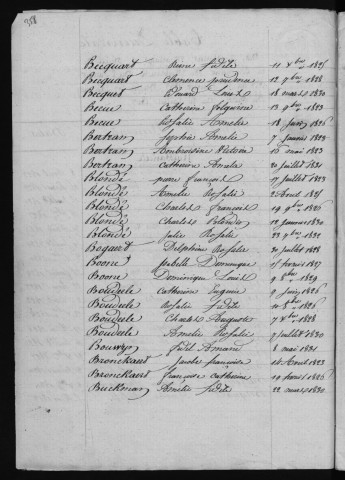 358
Becquart Reine fidele 11 Xbre 1825
Becquart Clemence prudence 12 9bre 1828
Becquet Edouard Louis 18 mars 1830
Becue Catherine folquine 13 9bre 1823
Becue Rosalie Amelie 18 janv 1826
Bertram Sophie Amelie 7 janvier 1828
Bertram Ambroisine Victoire mai 1823
Bertram Catherine Amelie 20 juillet 1830
Blondé pierre françois 17 juillet 1823
Blondé Amelie Rosalie 2 Aout 1825
Blondé Charles françois 19 9bre 1826
Blondé Charles Blondé 12 janvier 1830
Blondé Julie Rosalie 22 9bre 1832
Bogaert Delphine Rosalie 20 juillet 1828
Boone isabelle Dominique 25 fevrier 1827
Boone Dominique Louis 9 8bre 1829
Boudele Catherine Eugenie 9 juin 1826
Boudele Rosalie fidele 4 8bre 1826
Boudele Charles Auguste 4 Xbre 1828
Boudele Amelie Rosalie 7 juillet 1830
Bouwyn fidel Amand 1 mai 1831
Bronckaert Jacobe françoise 14 Aout 1823
Bronckaert françoise Catherine 19 fevrier 1826
Buckman Amelie fidele 22 mars 1830